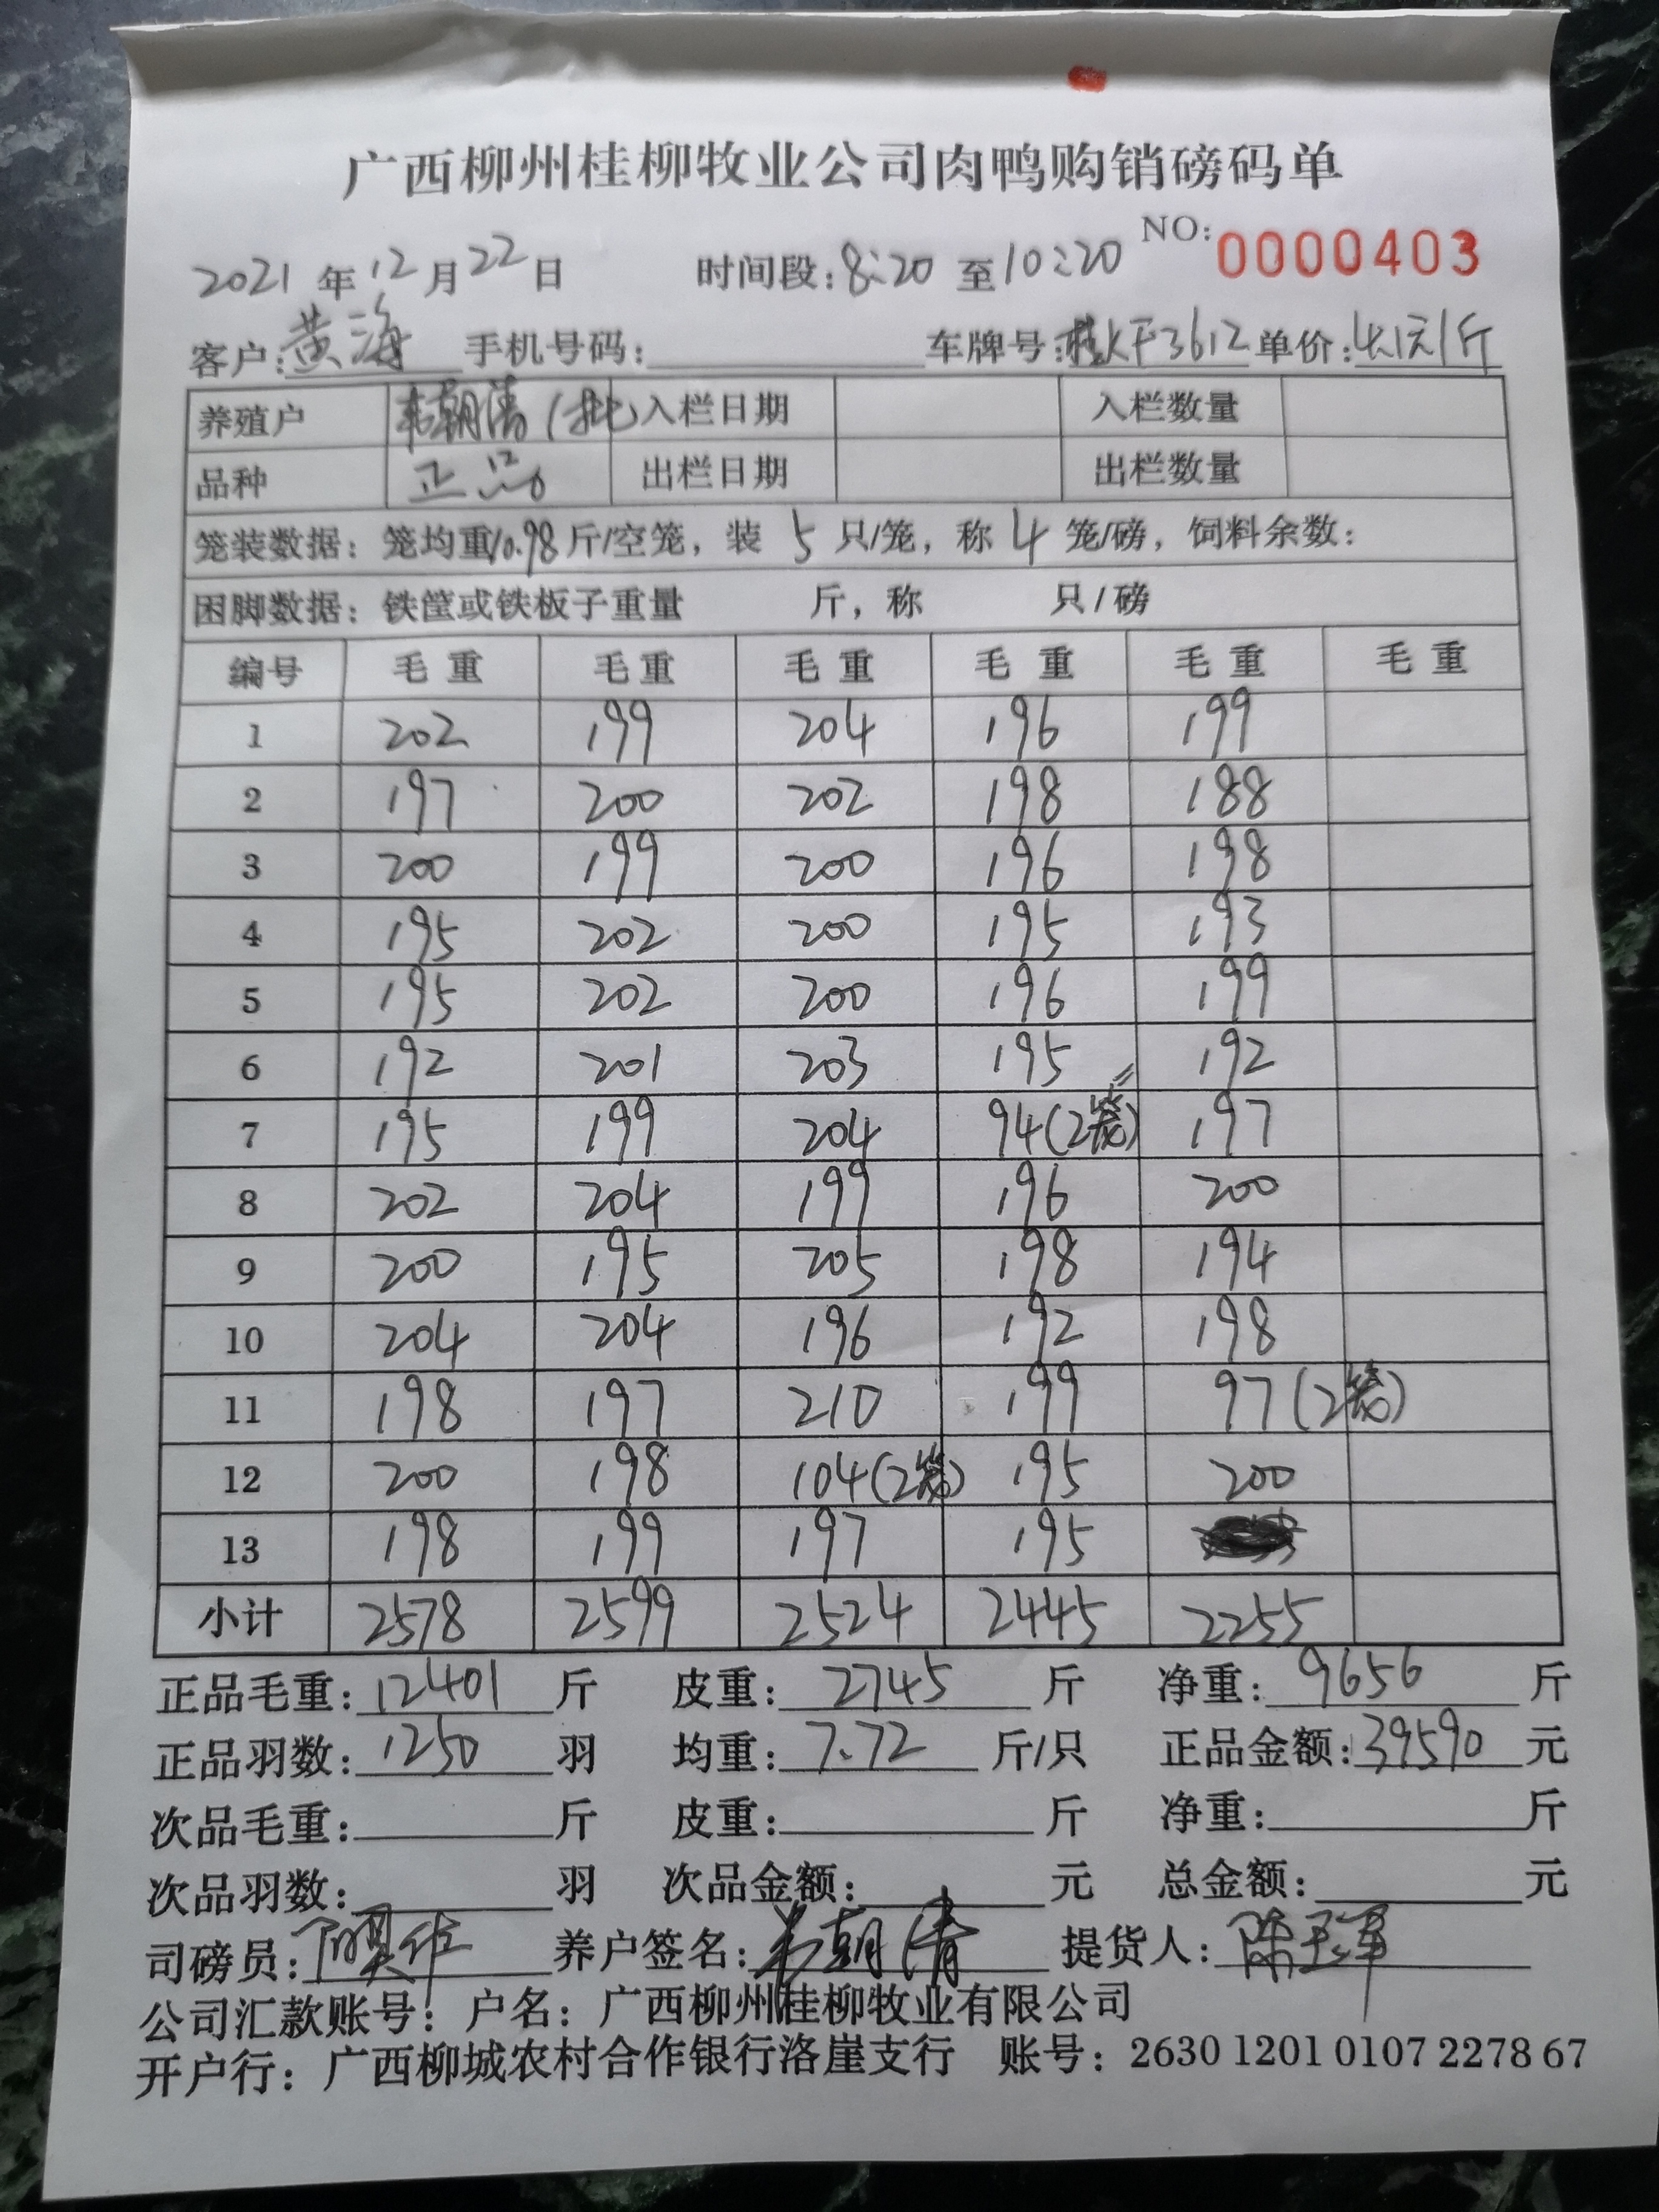 广西柳州桂柳牧业公司肉鸭购销磅码单
NO:0000403
2021 年 12 月 22 日 时间段:8:20 至 10:20
客户:黄海 手机号码: 车牌号:桂KF3612 单价:4.1元/斤
养殖户 韦朝清(批) 入栏日期 入栏数量
品种 正品 出栏日期 出栏数量
笼装数据:笼均重10.98斤/空笼,装 5 只/笼,称 4 笼/磅,饲料余数:
困脚数据:铁筐或铁板子重量 斤,称 只/磅
编号 毛重 毛重 毛重 毛重 毛重 毛重
1 202 199 204 196 199
2 197 200 202 198 188
3 200 199 200 196 198
4 195 202 200 195 193
5 195 202 200 196 199
6 192 201 203 195 192
7 195 199 204 94(2笼) 197
8 202 204 199 196 200
9 200 195 205 198 194
10 204 204 196 192 198
11 198 197 210 199 97(2笼)
12 200 198 104(2笼) 195 200
13 198 199 197 195
小计 2578 2599 2524 2445 2255
正品毛重:12401 斤 皮重:2745 斤 净重:9656 斤
正品羽数:1250 羽 均重:7.72 斤/只 正品金额:39590 元
次品毛重: 斤 皮重: 斤 净重: 斤
次品羽数: 羽 次品金额: 元 总金额: 元
司磅员: 养户签名:韦朝清 提货人:陈玉军
公司汇款账号:户名:广西柳州桂柳牧业有限公司
开户行:广西柳城农村合作银行洛崖支行 账号:2630 1201 0107 2278 67